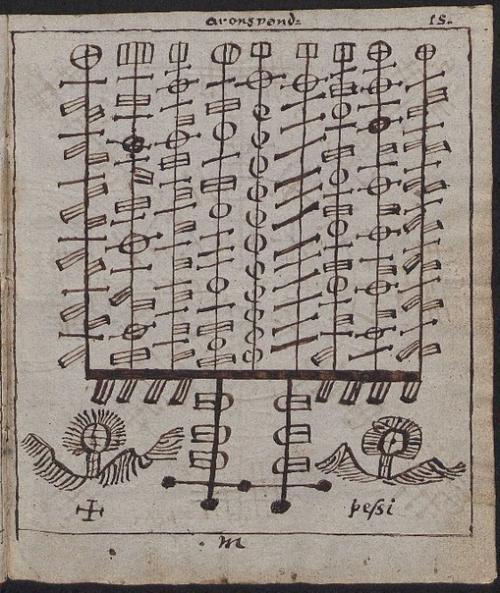 arongrond: 15.
pessi
m